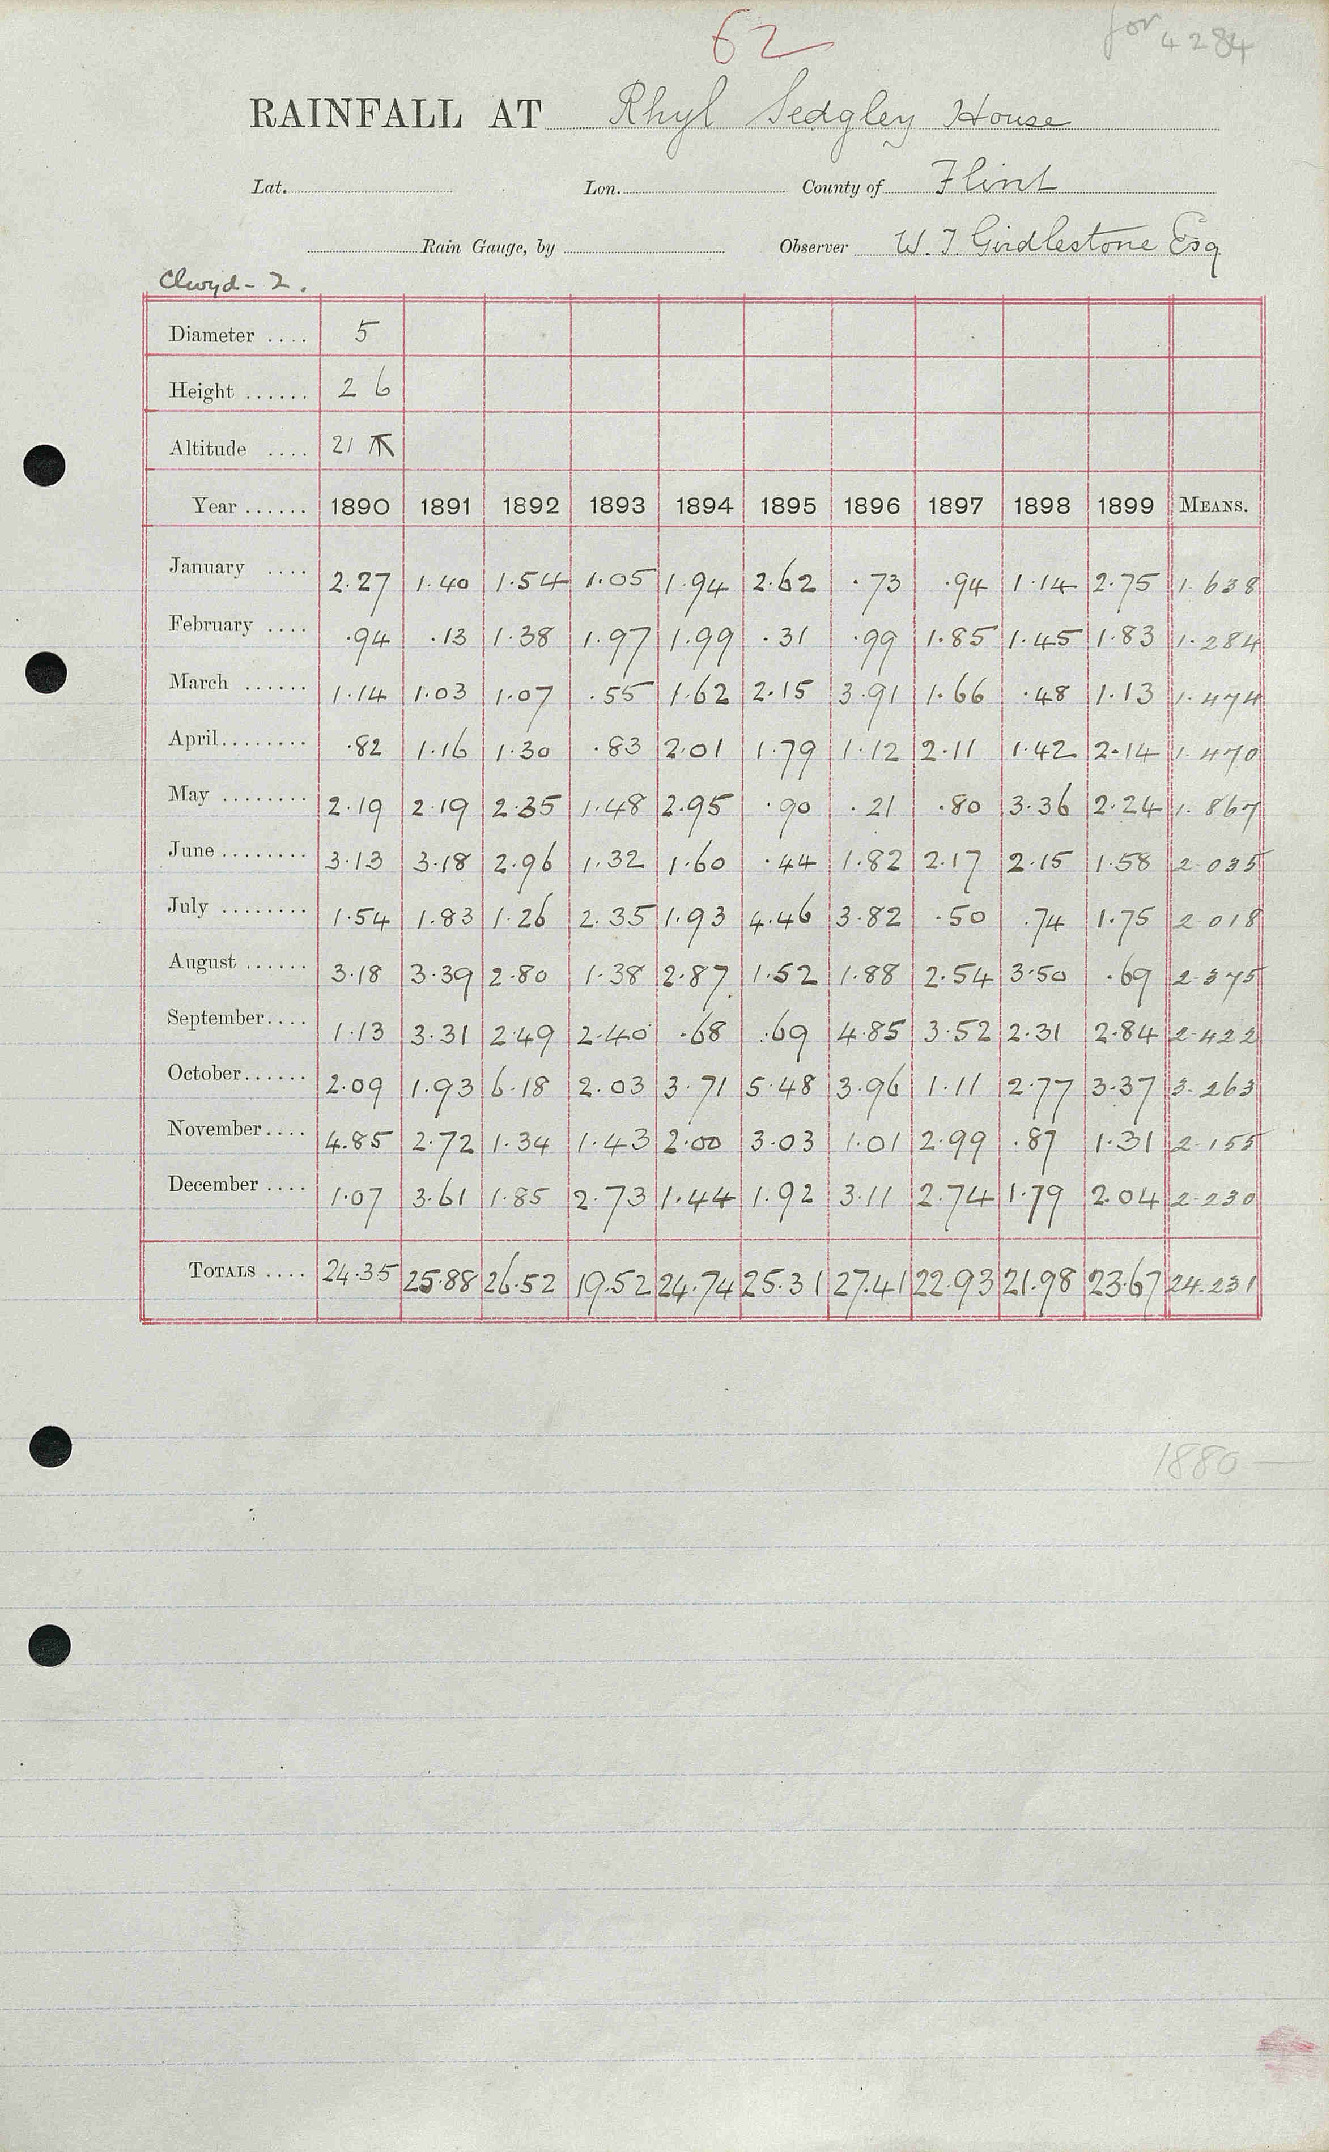 62
for 4284
RAINFALL AT Rhyl Sedgley House
Lat. Lon. County of Flint
Rain Gauge, by Observer W. T. Girdlestone Esq
Clwyd - 2.
Diameter .... 5
Height ...... 2 6
Altitude .... 21
Year ...... 1890 1891 1892 1893 1894 1895 1896 1897 1898 1899 MEANS.
January .... 2.27 1.40 1.54 1.05 1.94 2.62 .73 .94 1.14 2.75 1.638
February .... .94 .13 1.38 1.97 1.99 .31 .99 1.85 1.45 1.83 1.284
March ...... 1.14 1.03 1.07 .55 1.62 2.15 3.91 1.66 .48 1.13 1.474
April........ .82 1.16 1.30 .83 2.01 1.79 1.12 2.11 1.42 2.14 1.470
May ........ 2.19 2.19 2.35 1.48 2.95 .90 .21 .80 3.36 2.24 1.867
June ........ 3.13 3.18 2.96 1.32 1.60 .44 1.82 2.17 2.15 1.58 2.035
July ........ 1.54 1.83 1.26 2.35 1.93 4.46 3.82 .50 .74 1.75 2.018
August ...... 3.18 3.39 2.80 1.38 2.87 1.52 1.88 2.54 3.50 .69 2.375
September.... 1.13 3.31 2.49 2.40 .68 .69 4.85 3.52 2.31 2.84 2.422
October...... 2.09 1.93 6.18 2.03 3.71 5.48 3.96 1.11 2.77 3.37 3.263
November.... 4.85 2.72 1.34 1.43 2.00 3.03 1.01 2.99 .87 1.31 2.155
December .... 1.07 3.61 1.85 2.73 1.44 1.92 3.11 2.74 1.79 2.04 2.230
TOTALS .... 24.35 25.88 26.52 19.52 24.74 25.31 27.41 22.93 21.98 23.67 24.231
1880 —